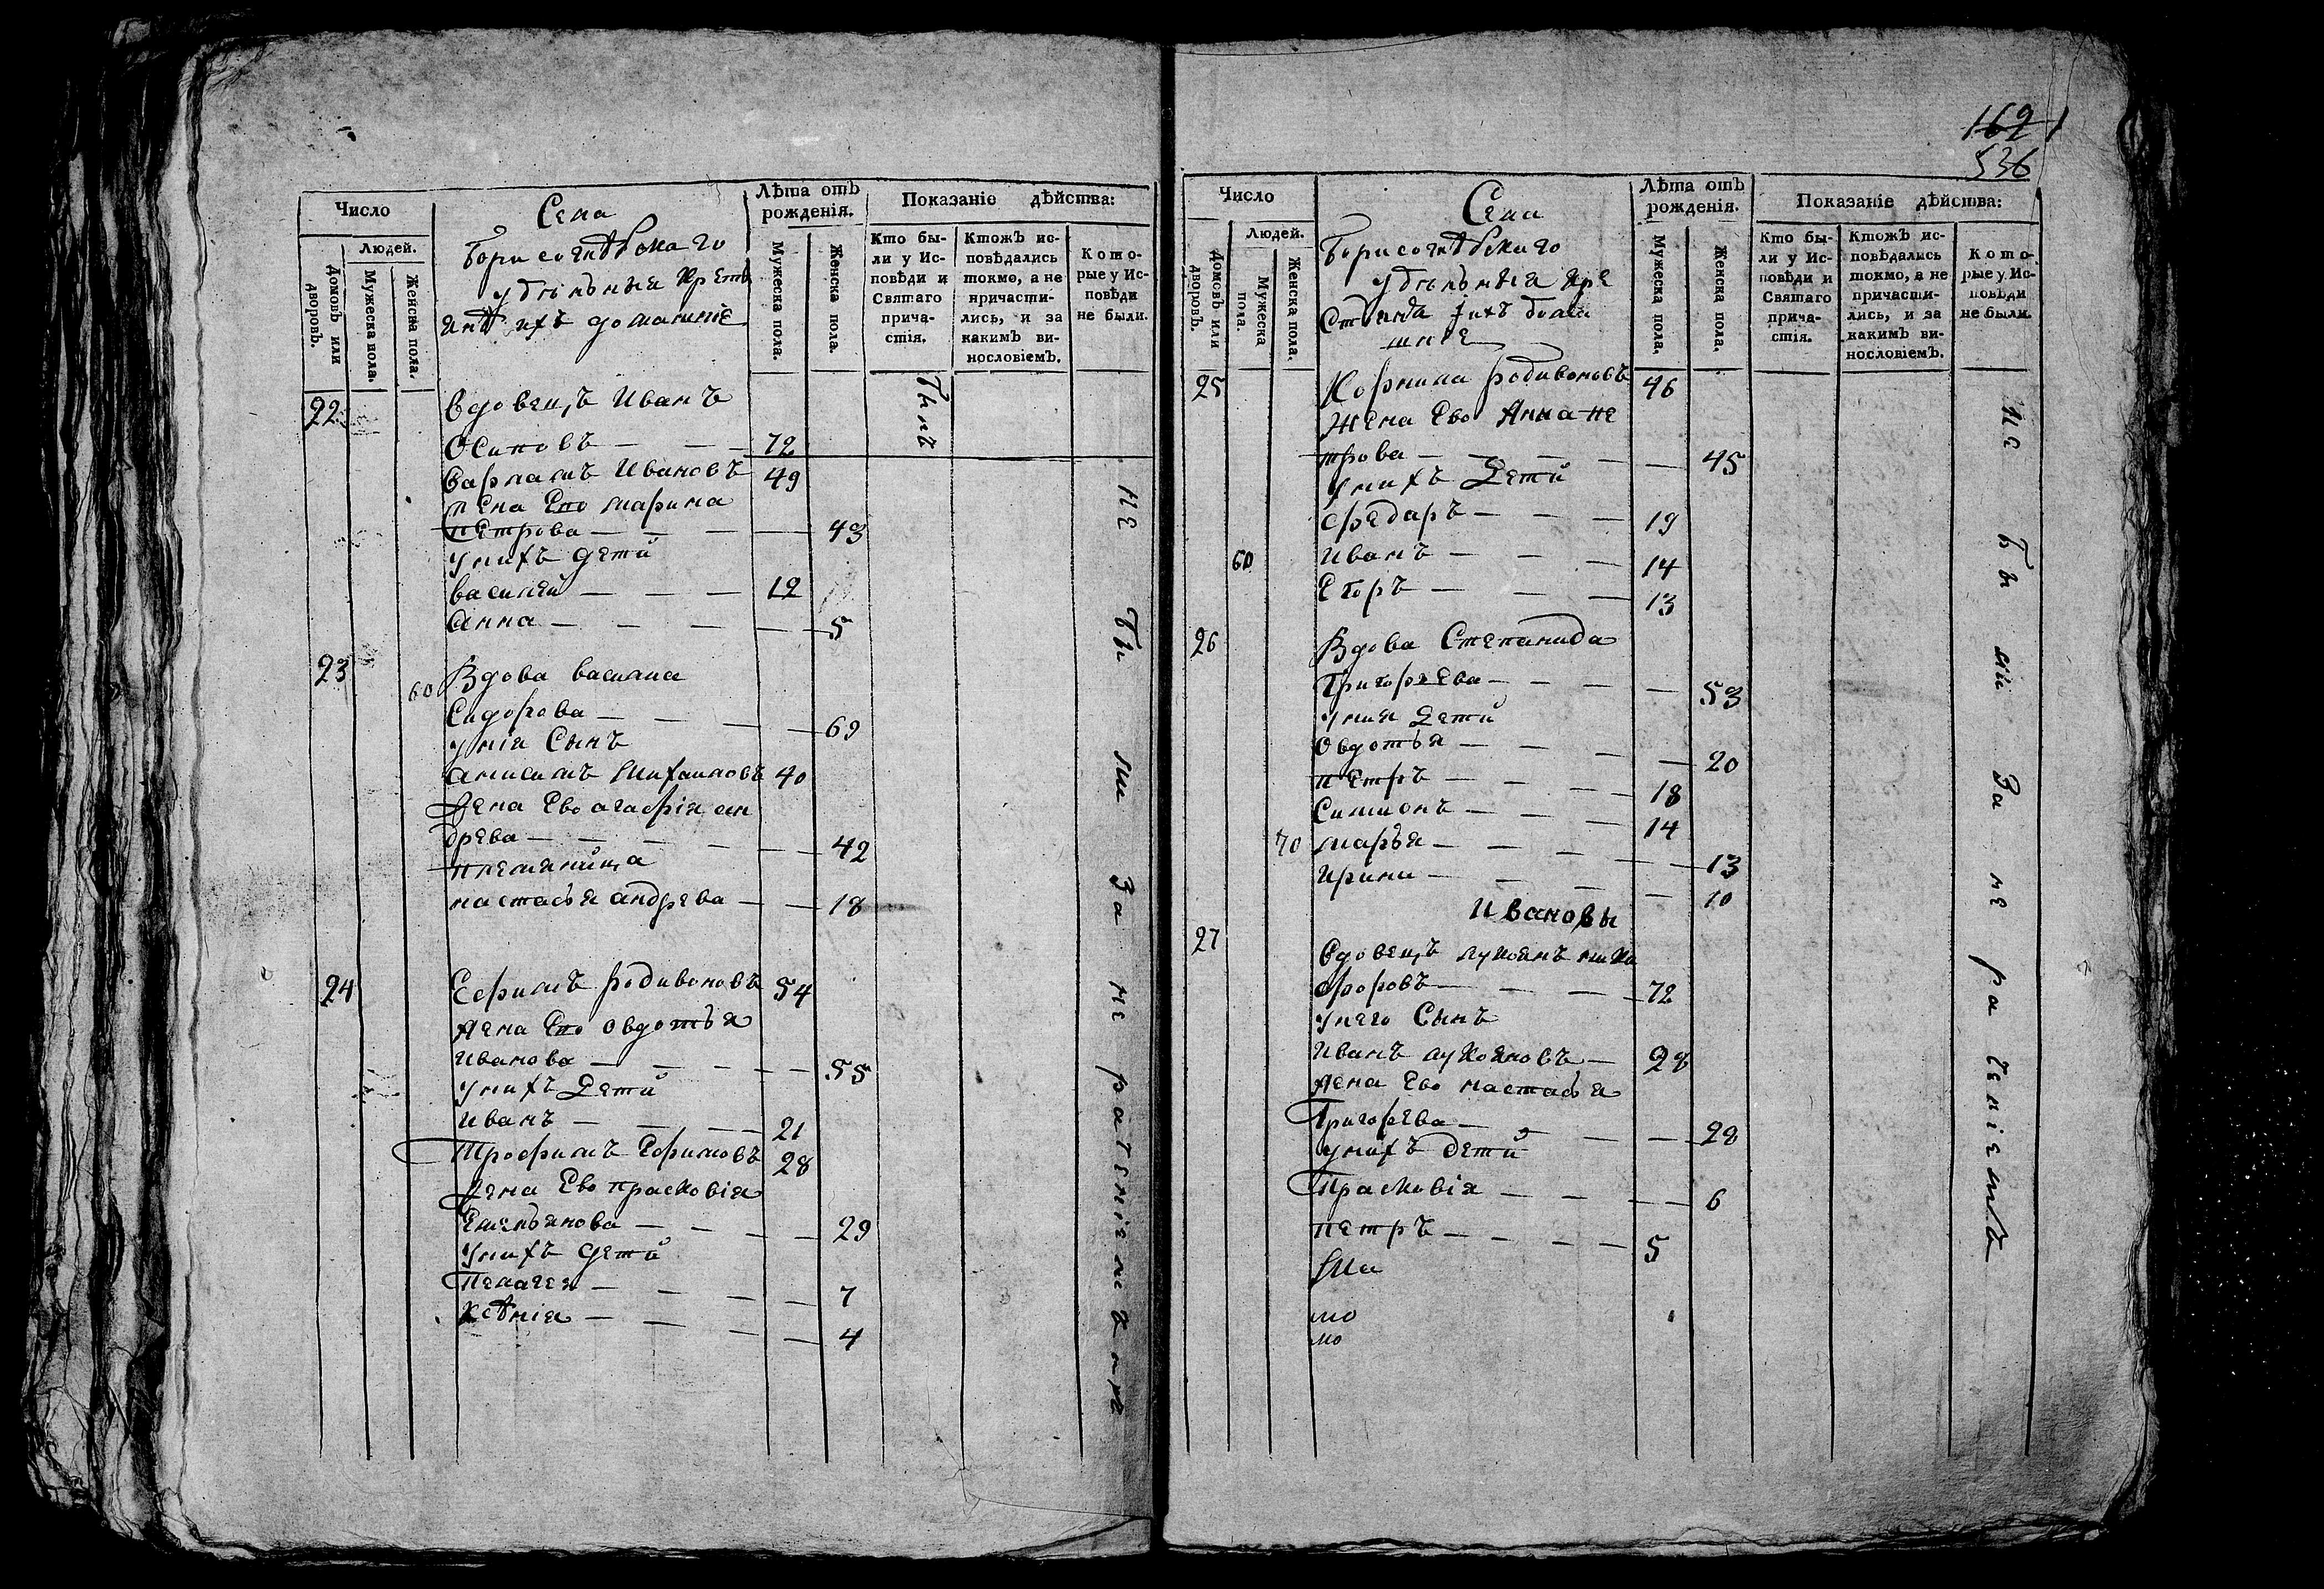 Число
Людей.
Домовъ или дворовъ.
Мужеска пола.
Женска пола.
Села
Борисоглѣбскаго
удѣльныя крестья
янѣ ихъ домашніе
Лѣта отъ рожденія.
Мужеска пола.
Женска пола.
Показаніе дѣйства:
Кто бы-
ли у Ис-
повѣди и
Святаго
прича-
стія.
Ктожъ ис-
повѣдались
токмо, а не
причасти-
лись, и за
какимъ ви-
нословіемъ.
Кото-
рые у Ис-
повѣди
не были.
22 вдовецъ Иванъ
Осиповъ — — 72
варламъ Ивановъ 49
жена Его марина
петрова — — — 43
у нихъ дети
василей — — — 12
Анна — — — 5
23 60 Вдова василиса
Сидорова — — — 69
у нія Сынъ
анисимъ Михаиловъ 40
жена Ево агафія ан
древа — — — 42
племяница
настасья андрева — — 18
24 Ефимъ родивоновъ 54
жена Его овдотья
иванова — — — 55
у нихъ Дети
иванъ — — — 21
Трофимъ Ефимовъ 28
жена Ево прасковія
Емельянова — — — 29
у нихъ дети
Пелагея — — — 7
Ксѣнія — — — 4
Былъ
не были за нераченіемъ
162
536
Число
Людей.
Домовъ или дворовъ.
Мужеска пола.
Женска пола.
Села
Борисоглѣбскаго
удѣльныя кре
стьянѣ ихъ дома
шніе
Лѣта отъ рожденія.
Мужеска пола.
Женска пола.
Показаніе дѣйства:
Кто бы-
ли у Ис-
повѣди и
Святаго
прича-
стія.
Ктожъ ис-
повѣдались
токмо, а не
причасти-
лись, и за
какимъ ви-
нословіемъ.
Кото-
рые у Ис-
повѣди
не были.
25 Корнила родивоновъ 46
жена Ево Анна пе
трова — — — 45
у нихъ Дети
федаръ — — — 19
60 иванъ — — — 14
Егоръ — — — 13
26 Вдова Степанида
Григорьева — — — 53
у ния Дети
овдотья — — — 20
петръ — — — 18
Симионъ — — — 14
70 марья — — — 13
ирина — — — 10
Ивановы
27 вдовецъ лукоянъ ники
форовъ — — — 72
у него Сынъ
иванъ лукояновъ — 28
жена Ево настасья
Григорева — — — 28
у нихъ дети
Прасковія — — — 6
петръ — — — 5
Ма
мо
мо
не были за нераченіемъ